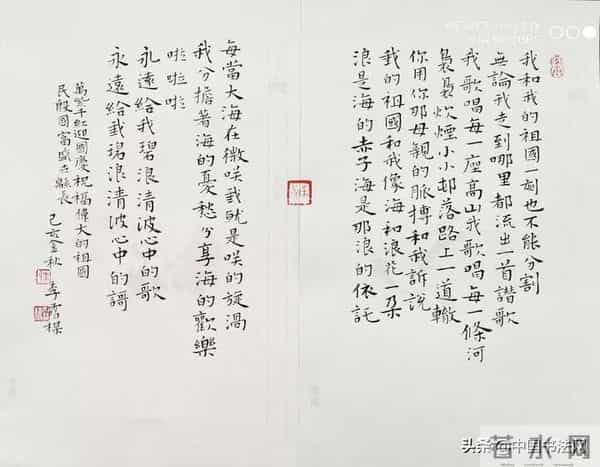 我和我的祖国一刻也不能分割
無論我走到哪里都流出一首讃歌
我歌唱每一座高山我歌唱每一條河
裊裊炊煙小小邨落路上一道轍
你用你那母親的脈搏和我訴説
我的祖國和我像海和浪花一朵
浪是海的赤子海是那浪的依託
每當大海在微咲我就是咲的旋渦
我分擔著海的憂愁分享海的歡樂
啦啦啦
永遠給我碧浪清波心中的歌
永遠給我碧浪清波心中的謌
萬紫千紅迎國慶祝福偉大的祖國
民殷國富盛世緜長
己亥金秋
李雪
头条@中国书法网
若水网